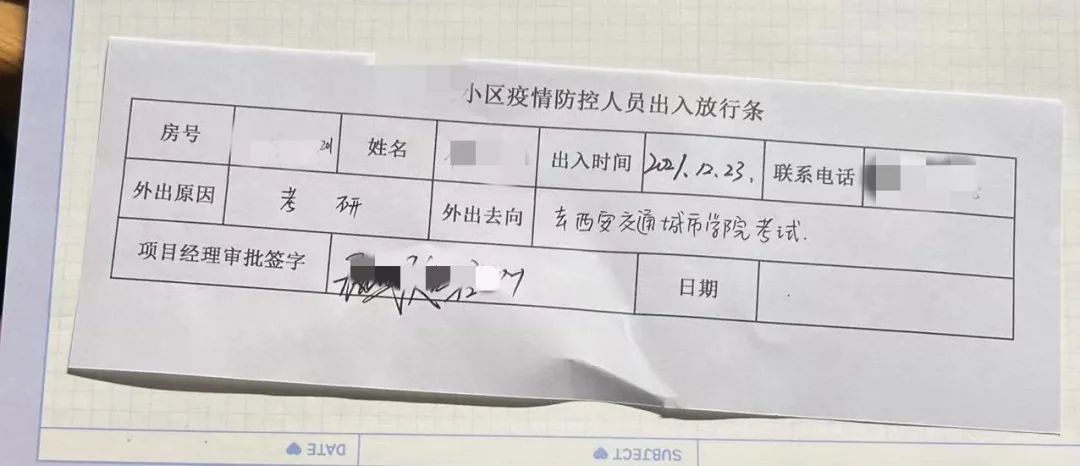 小区疫情防控人员出入放行条
房号 201 姓名 出入时间 2021.12.23. 联系电话
外出原因 考研 外出去向 去西安交通城市学院考试.
项目经理审批签字 日期
DATE
SUBJECT